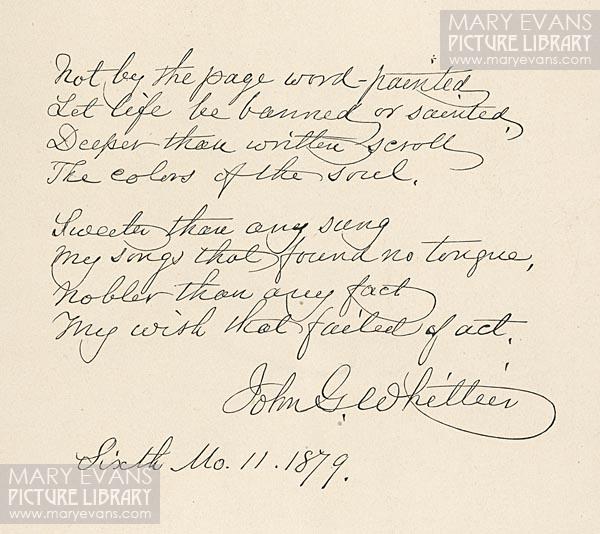 MARY EVANS
PICTURE LIBRARY
www.maryevans.com
Not by the page word-painted
Let life be banned or sainted,
Deeper than written scroll
The colors of the soul.
Sweeter than any sung
My songs that found no tongue,
Nobler than any fact
My wish that failed of act.
John G. Whittier
Sixth Mo. 11. 1879.
MARY EVANS
PICTURE LIBRARY
www.maryevans.com
MARY EVANS
PICTURE LIBRARY
www.maryevans.com